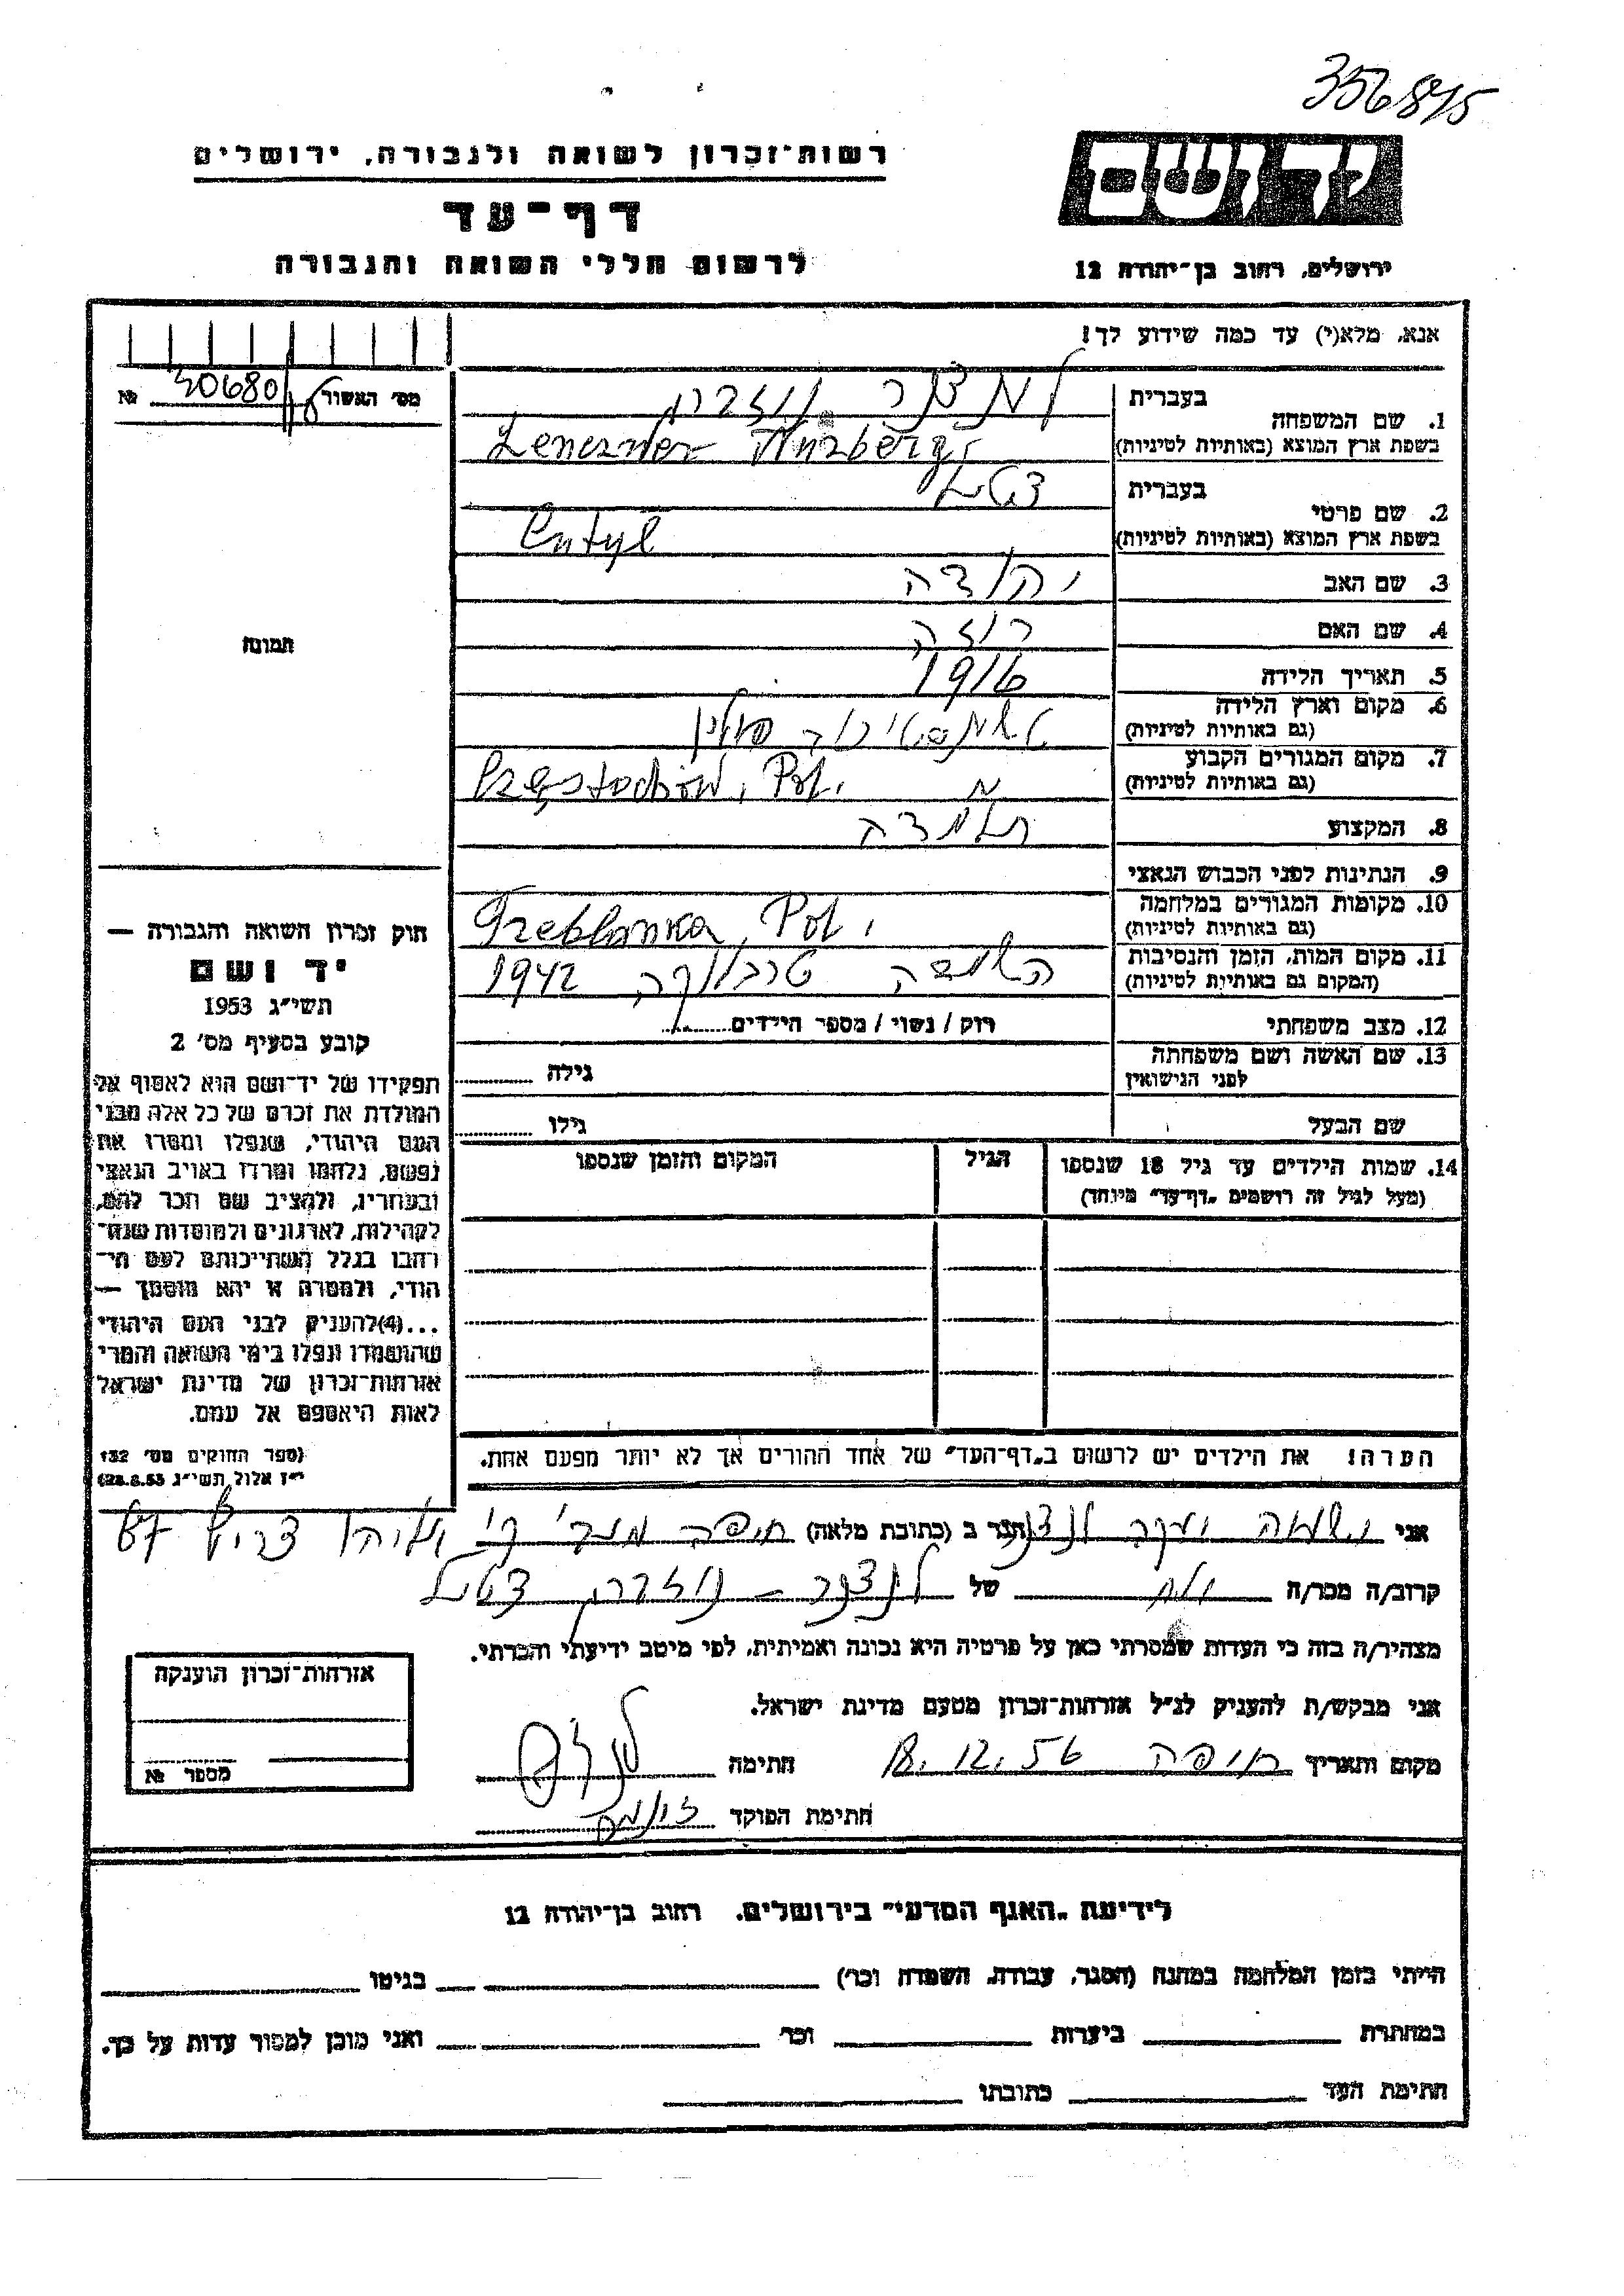 356845
יד ושם
רשות־זכרון לשואה ולגבורה, ירושלים
דף־עד
לרשום חללי השואה והגבורה
ירושלים, רחוב בן־יהודה 12
אנא, מלא(י) עד כמה שידוע לך!
מס׳ האשור 206801 №
בעברית
1. שם המשפחה
בשפת ארץ המוצא (באותיות לטיניות) Lenczner
בעברית
2. שם פרטי
בשפת ארץ המוצא (באותיות לטיניות)
3. שם האב יהודה
4. שם האם רוזה
5. תאריך הלידה 1916
6. מקום וארץ הלידה פולין
(גם באותיות לטיניות)
7. מקום המגורים הקבוע Częstochów, Pol.
(גם באותיות לטיניות)
8. המקצוע
9. הנתינות לפני הכבוש הנאצי
10. מקומות המגורים במלחמה Treblinka, Pol.
(גם באותיות לטיניות)
11. מקום המות, הזמן והנסיבות השמדה טרבלינקה 1942
(המקום גם באותיות לטיניות)
12. מצב משפחתי רוק / נשוי / מספר הילדים
13. שם האשה ושם משפחתה גילה
לפני הנישואין
שם הבעל גילו
14. שמות הילדים עד גיל 18 שנספו הגיל המקום והזמן שנספו
(מעל לגיל זה רושמים „דף־עד״ מיוחד)
הערה! את הילדים יש לרשום ב„דף־העד״ של אחד ההורים אך לא יותר מפעם אחת.
תמונה
חוק זכרון השואה והגבורה —
יד ושם
תשי״ג 1953
קובע בסעיף מס׳ 2
תפקידו של יד־ושם הוא לאסוף אל
המולדת את זכרם של כל אלה מבני
העם היהודי, שנפלו ומסרו את
נפשם, נלחמו ומרדו באויב הנאצי
ובעוזריו, ולהציב שם וזכר להם,
לקהילות, לארגונים ולמוסדות שנח־
רבו בגלל השתייכותם לעם הי־
הודי, ולמטרה זו יהא מוסמך —
...(4)להעניק לבני העם היהודי
שהושמדו ונפלו בימי השואה והמרי
אזרחות־זכרון של מדינת ישראל
לאות היאספם אל עמם.
(ספר החוקים מס׳ 132
י״ז אלול תשי״ג 28.8.53)
אני הגר ב (כתובת מלאה) חיפה 67
קרוב/ה מכר/ה של לנצנר
מצהיר/ה בזה כי העדות שמסרתי כאן על פרטיה היא נכונה ואמיתית, לפי מיטב ידיעתי והכרתי.
אני מבקש/ת להעניק לנ״ל אזרחות־זכרון מטעם מדינת ישראל.
מקום ותאריך חיפה 18.12.56 חתימה
חתימת הפוקד
אזרחות־זכרון הוענקה
מספר №
לידיעת „האגף המדעי״ בירושלים, רחוב בן־יהודה 12
הייתי בזמן המלחמה במחנה (הסגר, עבודה, השמדה וכו׳) בגיטו
במחתרת ביערות וכו׳ ואני מוכן למסור עדות על כך.
חתימת העד כתובתו